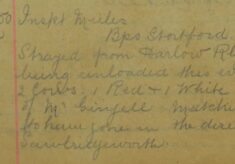 00 Inspt Miles
Bps Stortford
Strayed from Harlow R
being unloaded this e
2 Cows. 1 Red & 1 White
of Mr
to have gone in the dire
Sawbridgeworth